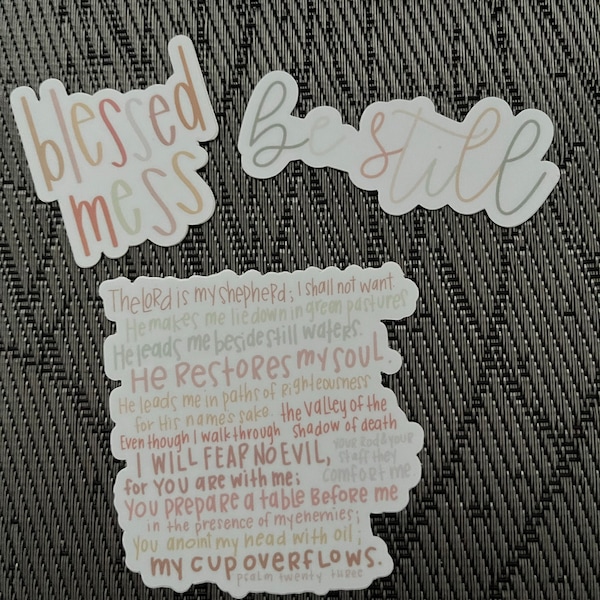 blessed
mess
be still
The Lord is my shepherd; I shall not want.
He makes me lie down in green pastures
He leads me beside still waters.
He Restores my soul.
He leads me in paths of righteousness
for His names sake. the valley of the
Even though I walk through shadow of death
I WILL FEAR NO EVIL, your rod & your
staff they
for you are with me; comfort me
you prepare a table before me
in the presence of my enemies;
you anoint my head with oil;
my cup overflows.
psalm twenty three